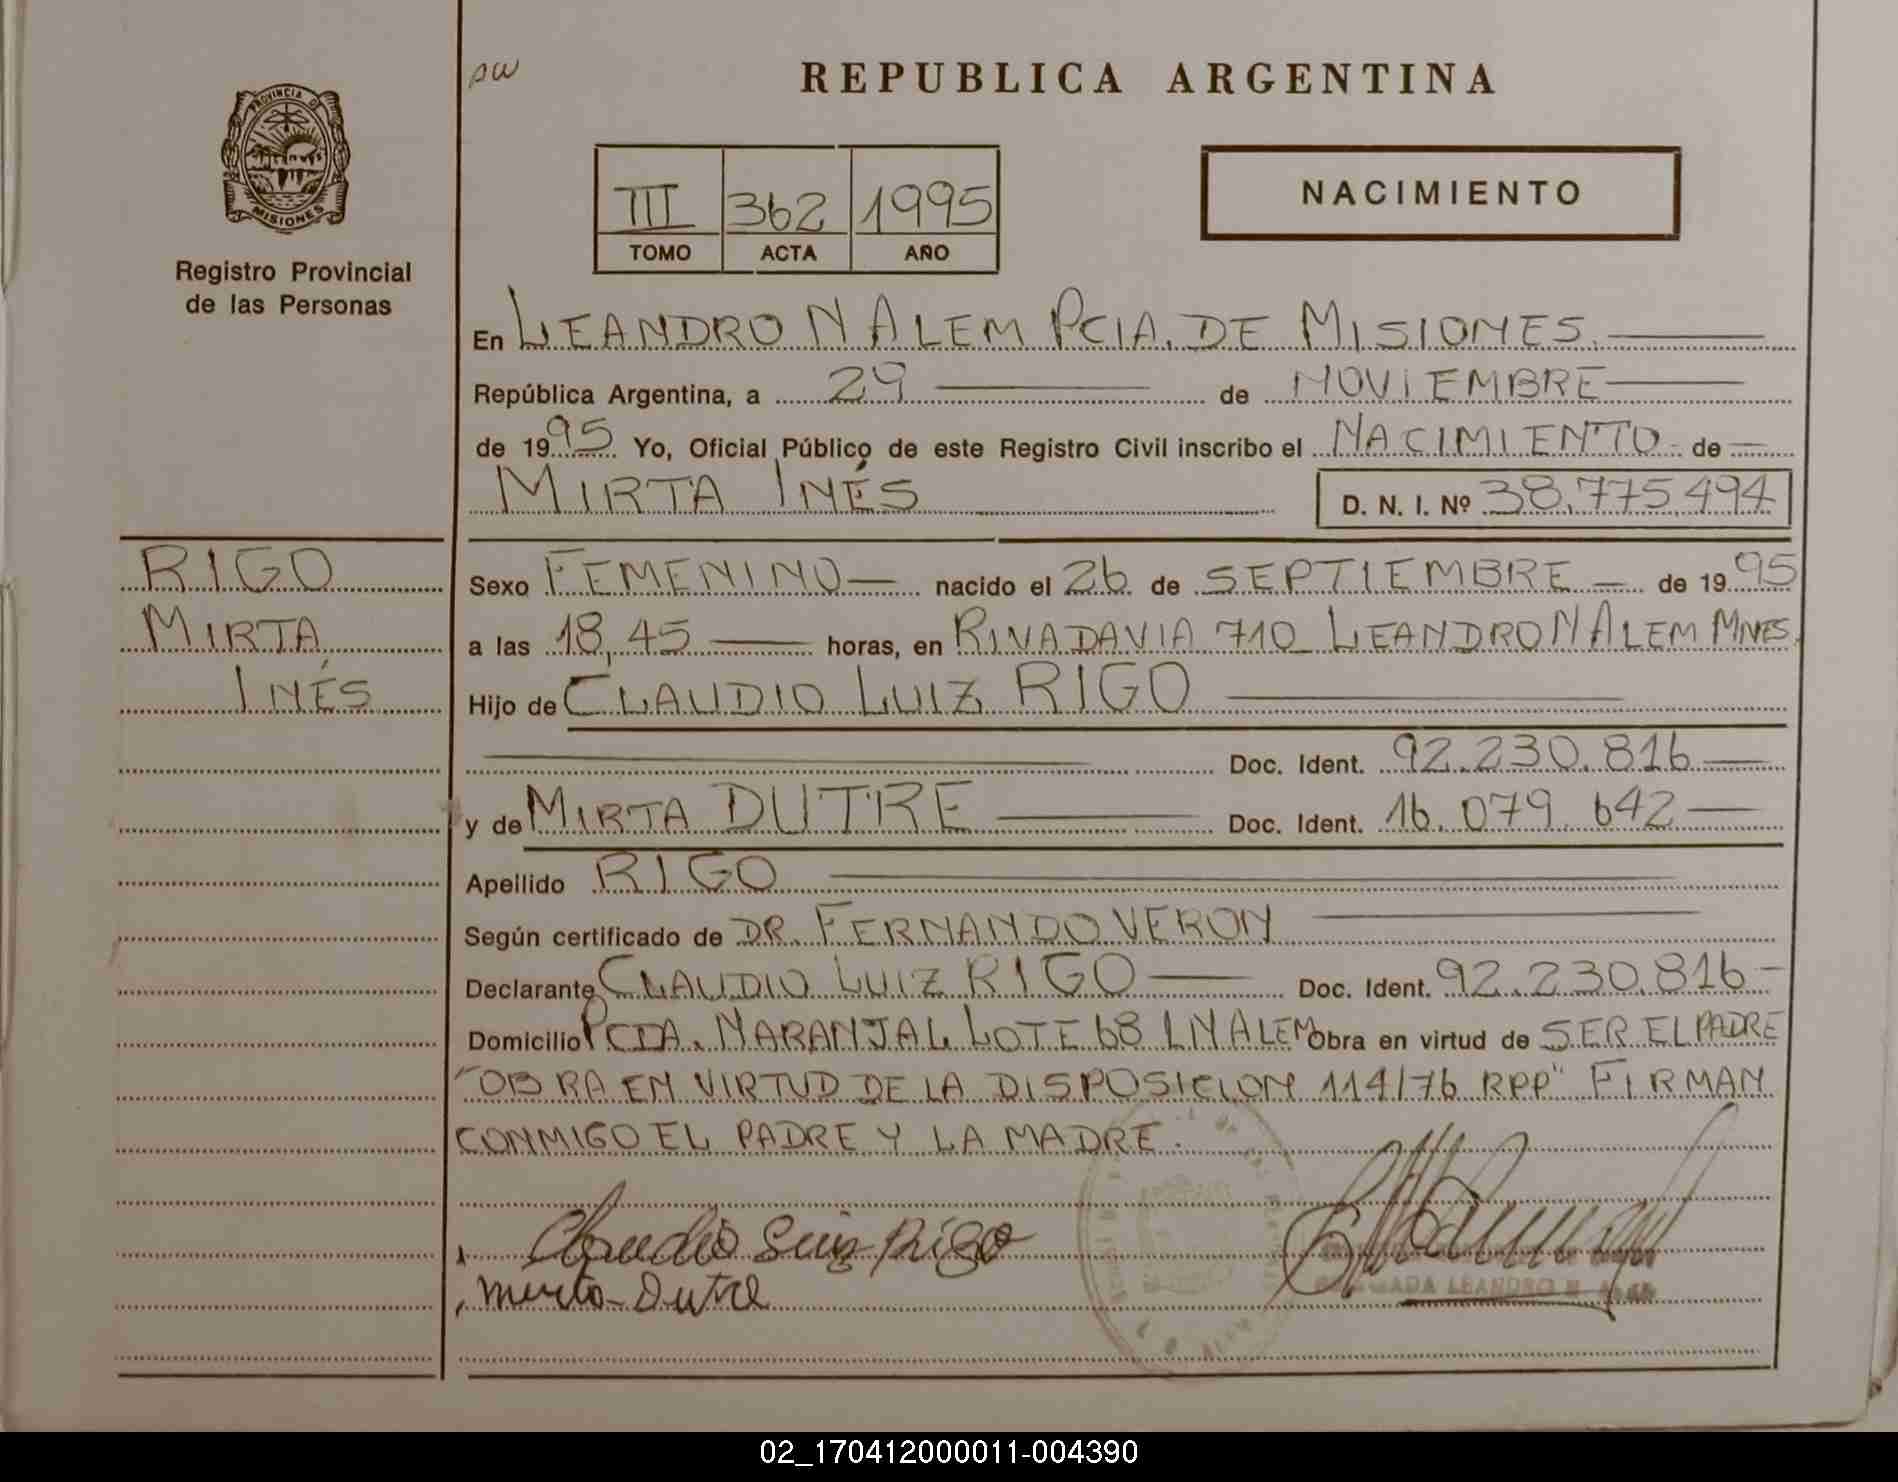 PW
REPUBLICA ARGENTINA
PROVINCIA D
MISIONES
Registro Provincial
de las Personas
III 362 1995
TOMO ACTA AÑO
NACIMIENTO
En LEANDRO N ALEM PCIA. DE MISIONES.
República Argentina, a 29 de NOVIEMBRE
de 1995 Yo, Oficial Público de este Registro Civil inscribo el NACIMIENTO de
MIRTA INÉS D. N. I. Nº 38.775.494
RIGO
MIRTA
INÉS
Sexo FEMENINO nacido el 26 de SEPTIEMBRE de 1995
a las 18,45 horas, en RIVADAVIA 710 LEANDRO N ALEM MNES.
Hijo de CLAUDIO LUIZ RIGO
Doc. Ident. 92.230.816
y de MIRTA DUTRE Doc. Ident. 16.079.642
Apellido RIGO
Según certificado de DR. FERNANDO VERON
Declarante CLAUDIO LUIZ RIGO Doc. Ident. 92.230.816
Domicilio PCIA. NARANJAL LOTE 68 L N ALEM Obra en virtud de SER EL PADRE
"OBRA EN VIRTUD DE LA DISPOSICION 114/76 RPP" FIRMAN
CONMIGO EL PADRE Y LA MADRE.
Claudio Luiz Rigo
Mirta Dutre
LEANDRO N
02_170412000011-004390